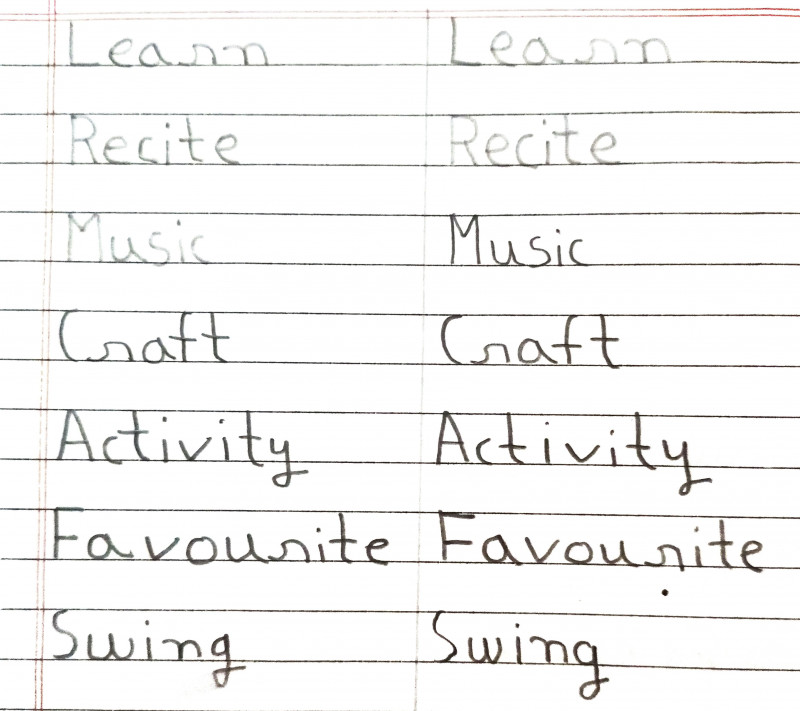 Learn Learn
Recite Recite
Music Music
Craft Craft
Activity Activity
Favourite Favourite
Swing Swing